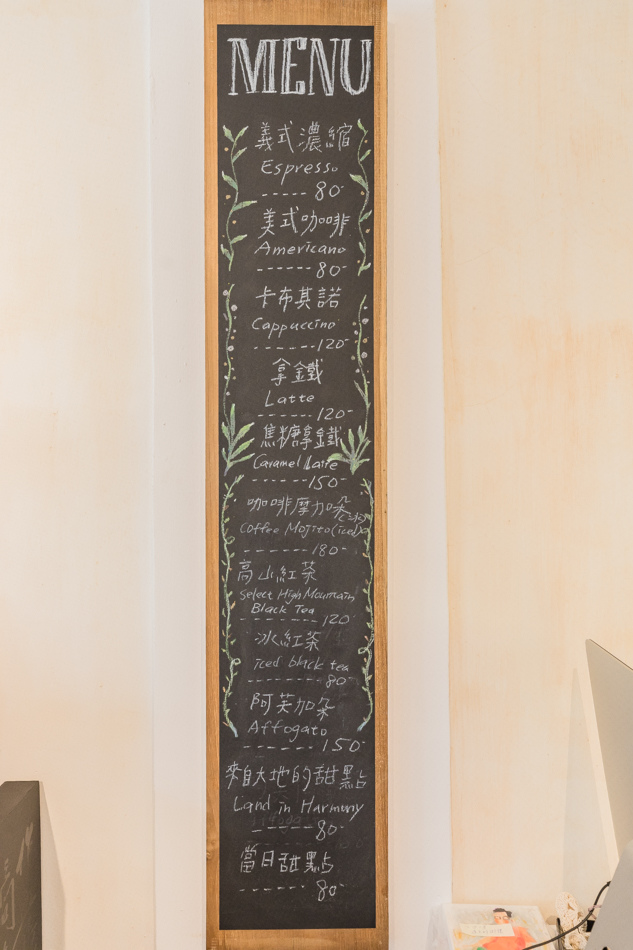 MENU
義式濃縮
Espresso
----- 80-
美式咖啡
Americano
------ 80-
卡布其諾
Cappuccino
------- 120-
拿鐵
Latte
------- 120-
焦糖拿鐵
Caramel Latte
------- 150-
咖啡摩加朵(冰)
Coffee Mojito(iced)
------- 180-
高山紅茶
Select High Mountain
Black Tea
-------- 120-
冰紅茶
iced black tea
-------- 80-
阿芙加朵
Affogato
------- 150-
來自大地的甜點
Land in Harmony
------ 80-
當日甜點
------- 80-